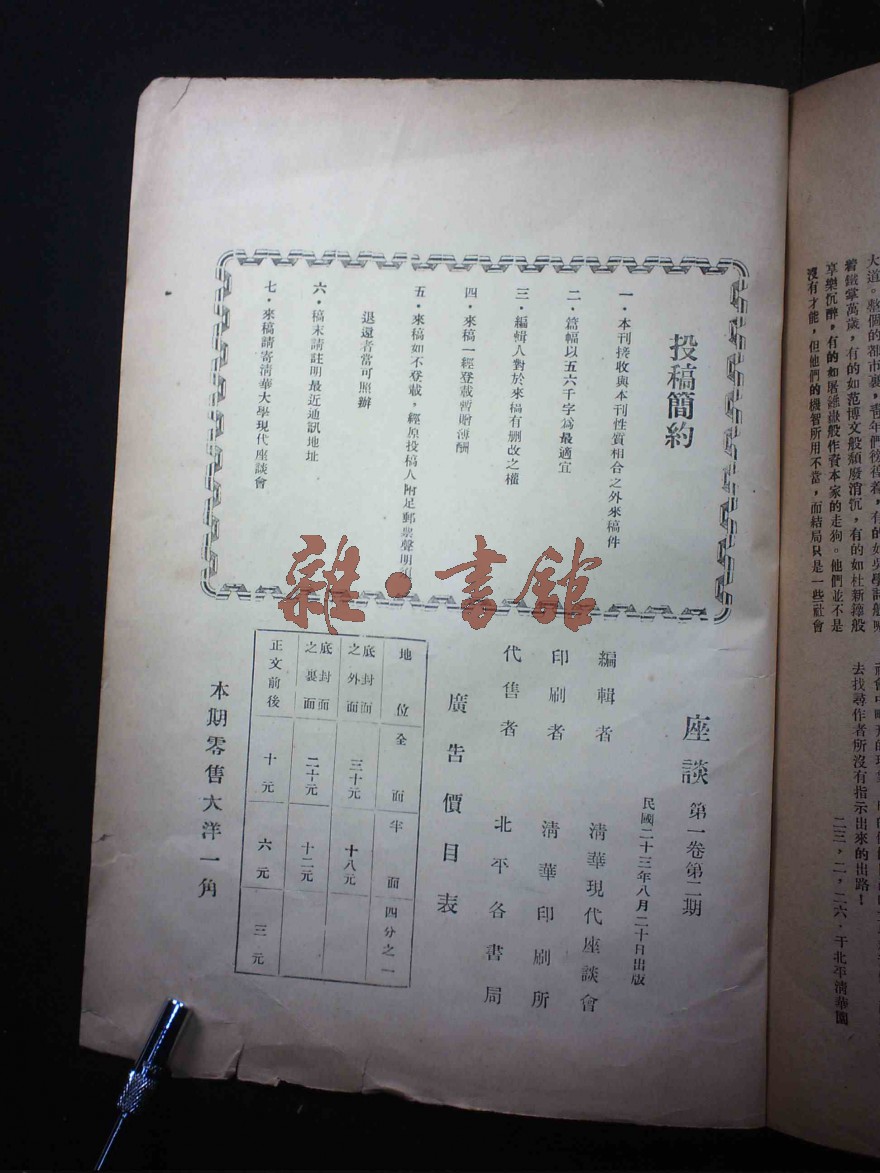 大道。整個的都市裏，靑年們徬徨着，有的如吳學詩般
着鐵掌萬歲，有的如范博文般頹廢消沉，有的如杜新籜般
享樂沉醉，有的如屠維嶽般作資本家的走狗。他們並不是
沒有才能，但他們的機智所用不當，而結局只是一些社會
去找尋作者所沒有指示出來的出路！
二三，二，二六，于北平淸華園
投稿簡約
一．本刊接收與本刊性質相合之外來稿件
二．篇幅以五六千字爲最適宜
三．編輯人對於來稿有刪改之權
四．來稿一經登載暫贈薄酬
五．來稿如不登載，經原投稿人附足郵票聲明
退還者當可照辦
六．稿末請註明最近通訊地址
七．來稿請寄淸華大學現代座談會
座談 第一卷第二期
民國二十三年八月二十日出版
編輯者 淸華現代座談會
印刷者 淸華印刷所
代售者 北平各書局
廣告價目表
地位 全面 半面 四分之一
底封面之外面 三十元 十八元
底封面之裏面 二十元 十二元
正文前後 十元 六元 三元
本期零售大洋一角
雜·書館